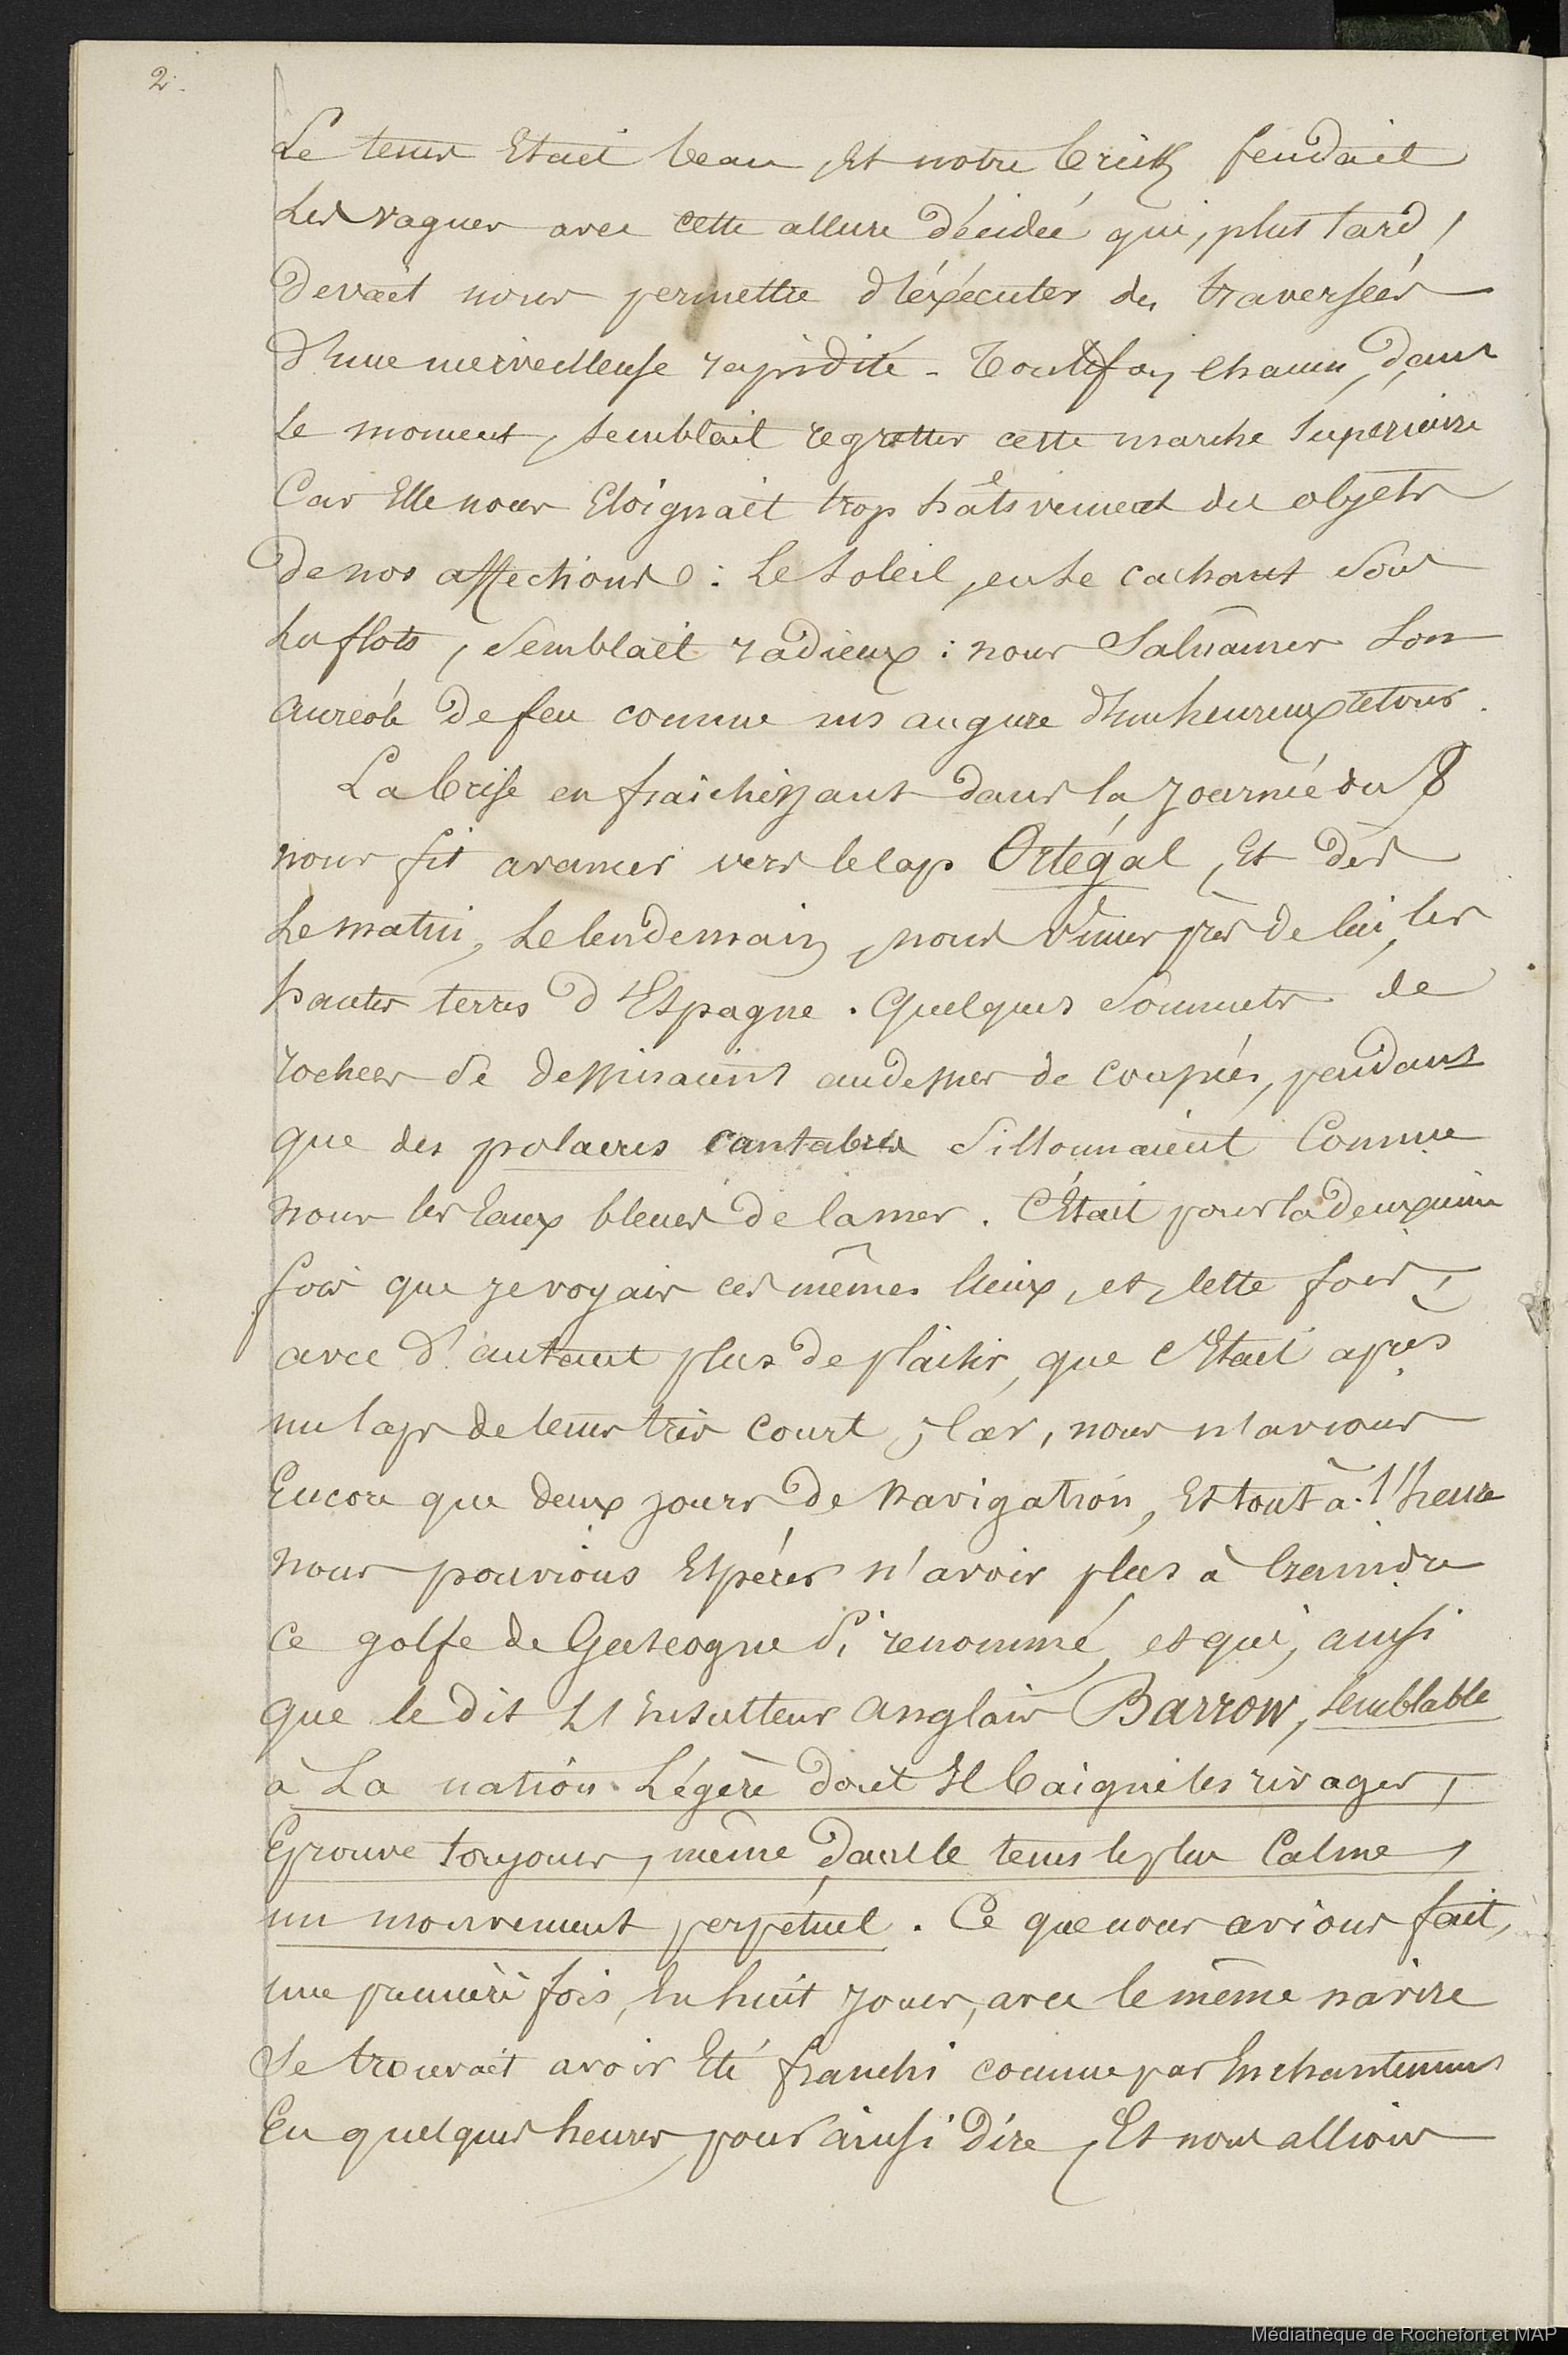 2.
Le tems était beau, et notre brick fendait
les vagues avec cette allure décidée qui, plus tard,
devait nous permettre d'éxécuter des traversées
d'une merveilleuse rapidité - Toutefois chacun, dans
le moment, semblait regretter cette marche supérieure
Car Elle nous Eloignait trop hâtivement des objets
de nos affections : Le soleil, en se cachant sous
les flots, semblait radieux : nous saluâmes son
auréole de feu comme un augure d'un heureux retour.
La brise en fraichissant dans la journée du 8
nous fit avancer vers le cap Ortégal, Et dès
le matin, le lendemain, nous vîmes près de lui, les
hautes terres d'Espagne. Quelques sommets de
rochers se dessinaient audessus de coupées, pendant
que des polacres cantabres sillonnaient comme
nous les Eaux bleues de la mer. C'Était pour la deuxième
fois que je voyais ces mêmes lieux, et, cette fois,
avec d'autant plus de plaisir, que c'Etait après
un laps de tems très court, car, nous n'avions
Encore que deux jours de navigation, Et tout à l'heure
nous pouvions Espérer n'avoir plus à Craindre
ce golfe de Gascogne si renommé, et qui, ainsi
que le dit L'insulteur anglais Barrow, semblable
à La nation Légère dont Il baigne les rivages,
Eprouve toujours, même dans le tems le plus calme,
un mouvement perpétuel. Ce que nous avions fait,
une première fois, En huit jours, avec le même navire
se trouvait avoir Eté franchi comme par Enchantement
En quelques heures, pour ainsi dire, Et nous allions
Médiathèque de Rochefort et MAP